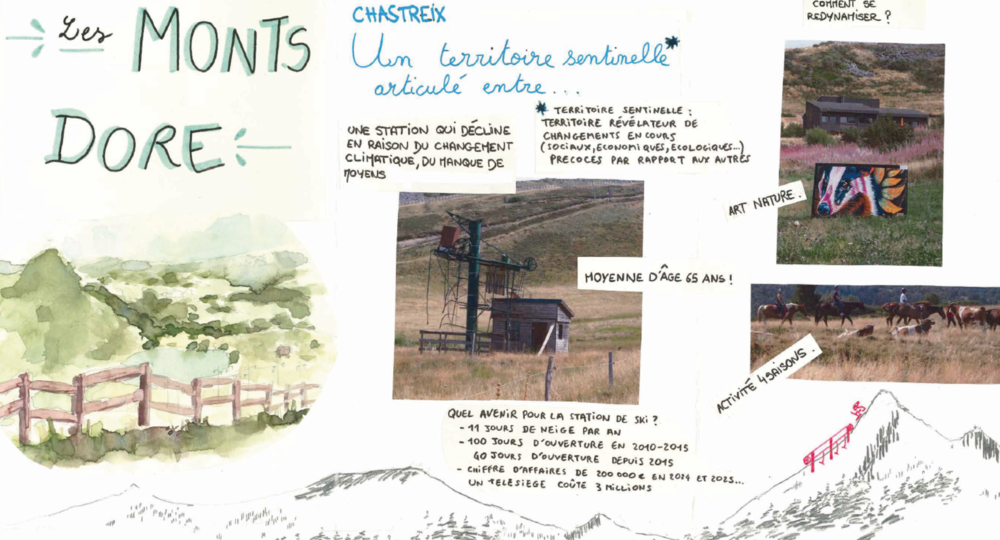 Les MONTS
DORE
CHASTREIX
Un territoire sentinelle*
articulé entre...
* TERRITOIRE SENTINELLE :
TERRITOIRE RÉVÉLATEUR DE
CHANGEMENTS EN COURS
(SOCIAUX, ECONOMIQUES, ECOLOGIQUES...)
PRECOCES PAR RAPPORT AUX AUTRES
UNE STATION QUI DÉCLINE
EN RAISON DU CHANGEMENT
CLIMATIQUE, DU MANQUE DE
MOYENS
MOYENNE D'ÂGE 65 ANS !
QUEL AVENIR POUR LA STATION DE SKI ?
- 11 JOURS DE NEIGE PAR AN
- 100 JOURS D'OUVERTURE EN 2010-2015
40 JOURS D'OUVERTURE DEPUIS 2015
- CHIFFRE D'AFFAIRES DE 200 000 € EN 2024 ET 2025...
UN TELESIEGE COÛTE 3 MILLIONS
COMMENT SE
REDYNAMISER ?
ART NATURE.
ACTIVITÉ 4 SAISONS.